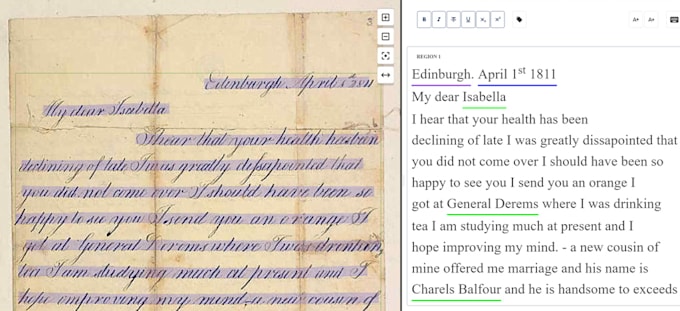 3
Edinburgh April 1st 1811
My dear Isabella
I hear that your health has been
declining of late I was greatly dissapointed that
you did not come over I should have been so
happy to see you I send you an orange I
got at General Derems where I was drinking
tea I am studying much at present and I
hope improving my mind - a new cousin of
B I T U X₂ X²
A+ A+
REGION 1
Edinburgh. April 1st 1811
My dear Isabella
I hear that your health has been
declining of late I was greatly dissapointed that
you did not come over I should have been so
happy to see you I send you an orange I
got at General Derems where I was drinking
tea I am studying much at present and I
hope improving my mind. - a new cousin of
mine offered me marriage and his name is
Charels Balfour and he is handsome to exceeds